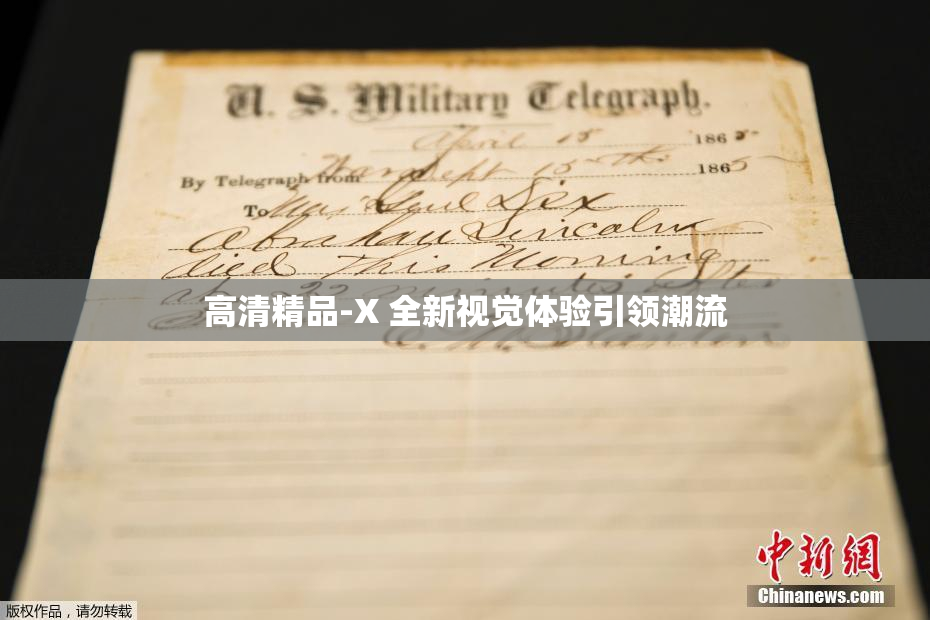 U. S. Military Telegraph.
April 15 1865
By Telegraph from War Dept 15th 1865
To Maj Genl Dix
Abraham Lincoln
died This Morning
at 22 minutes after
高清精品-X 全新视觉体验引领潮流
E. M. Stanton
中新网
Chinanews.com
版权作品，请勿转载